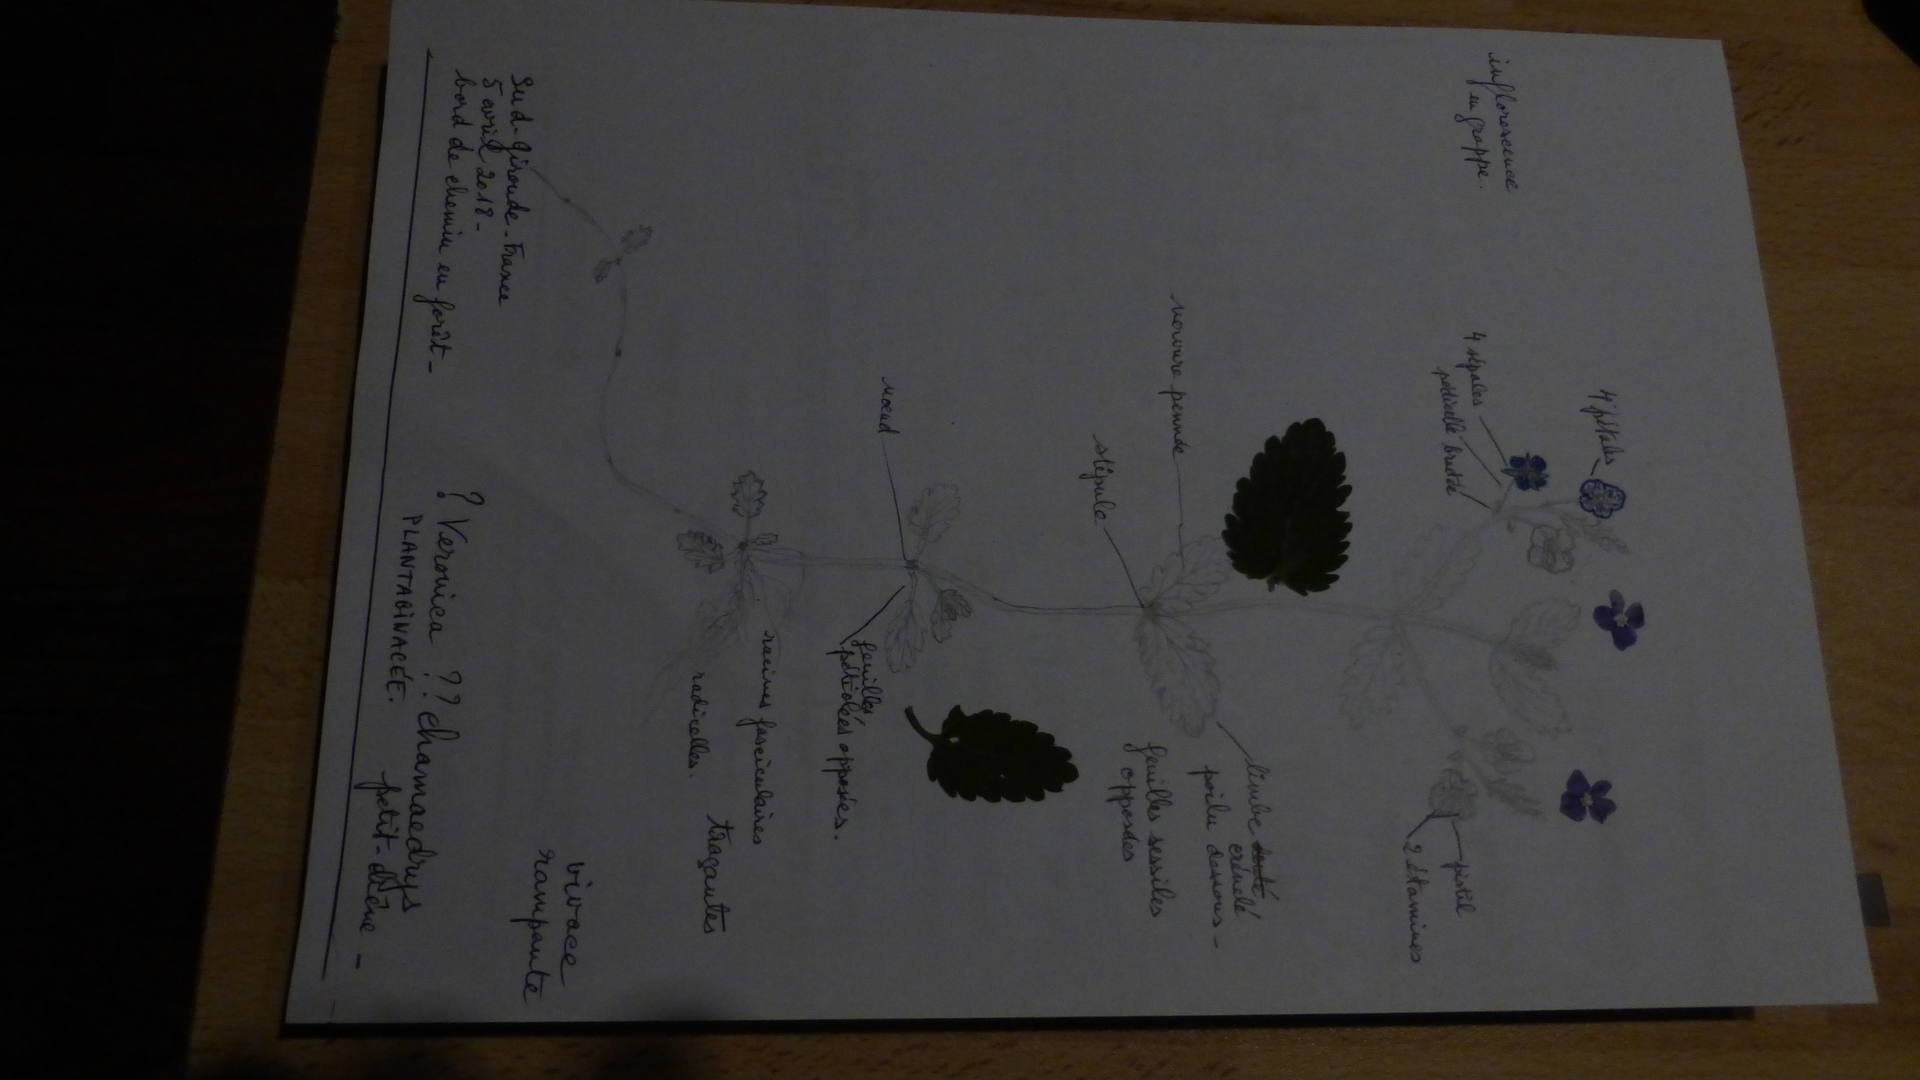 inflorescence
en grappe.
4 pétales
4 sépales
pédicelle bractée
pistil
2 étamines
nervure pennée
limbe denté
crénelé
poilu dessous -
stipule
feuilles sessiles
opposées
noeud
feuilles
pétiolées opposées.
racines fasciculaires
radicelles.
traçantes
vivace
rampante
Sud-Gironde - France
5 avril 2018 -
bord de chemin en forêt -
? Veronica ?? chamaedrys
PLANTAGINACÉE.
petit-chêne -